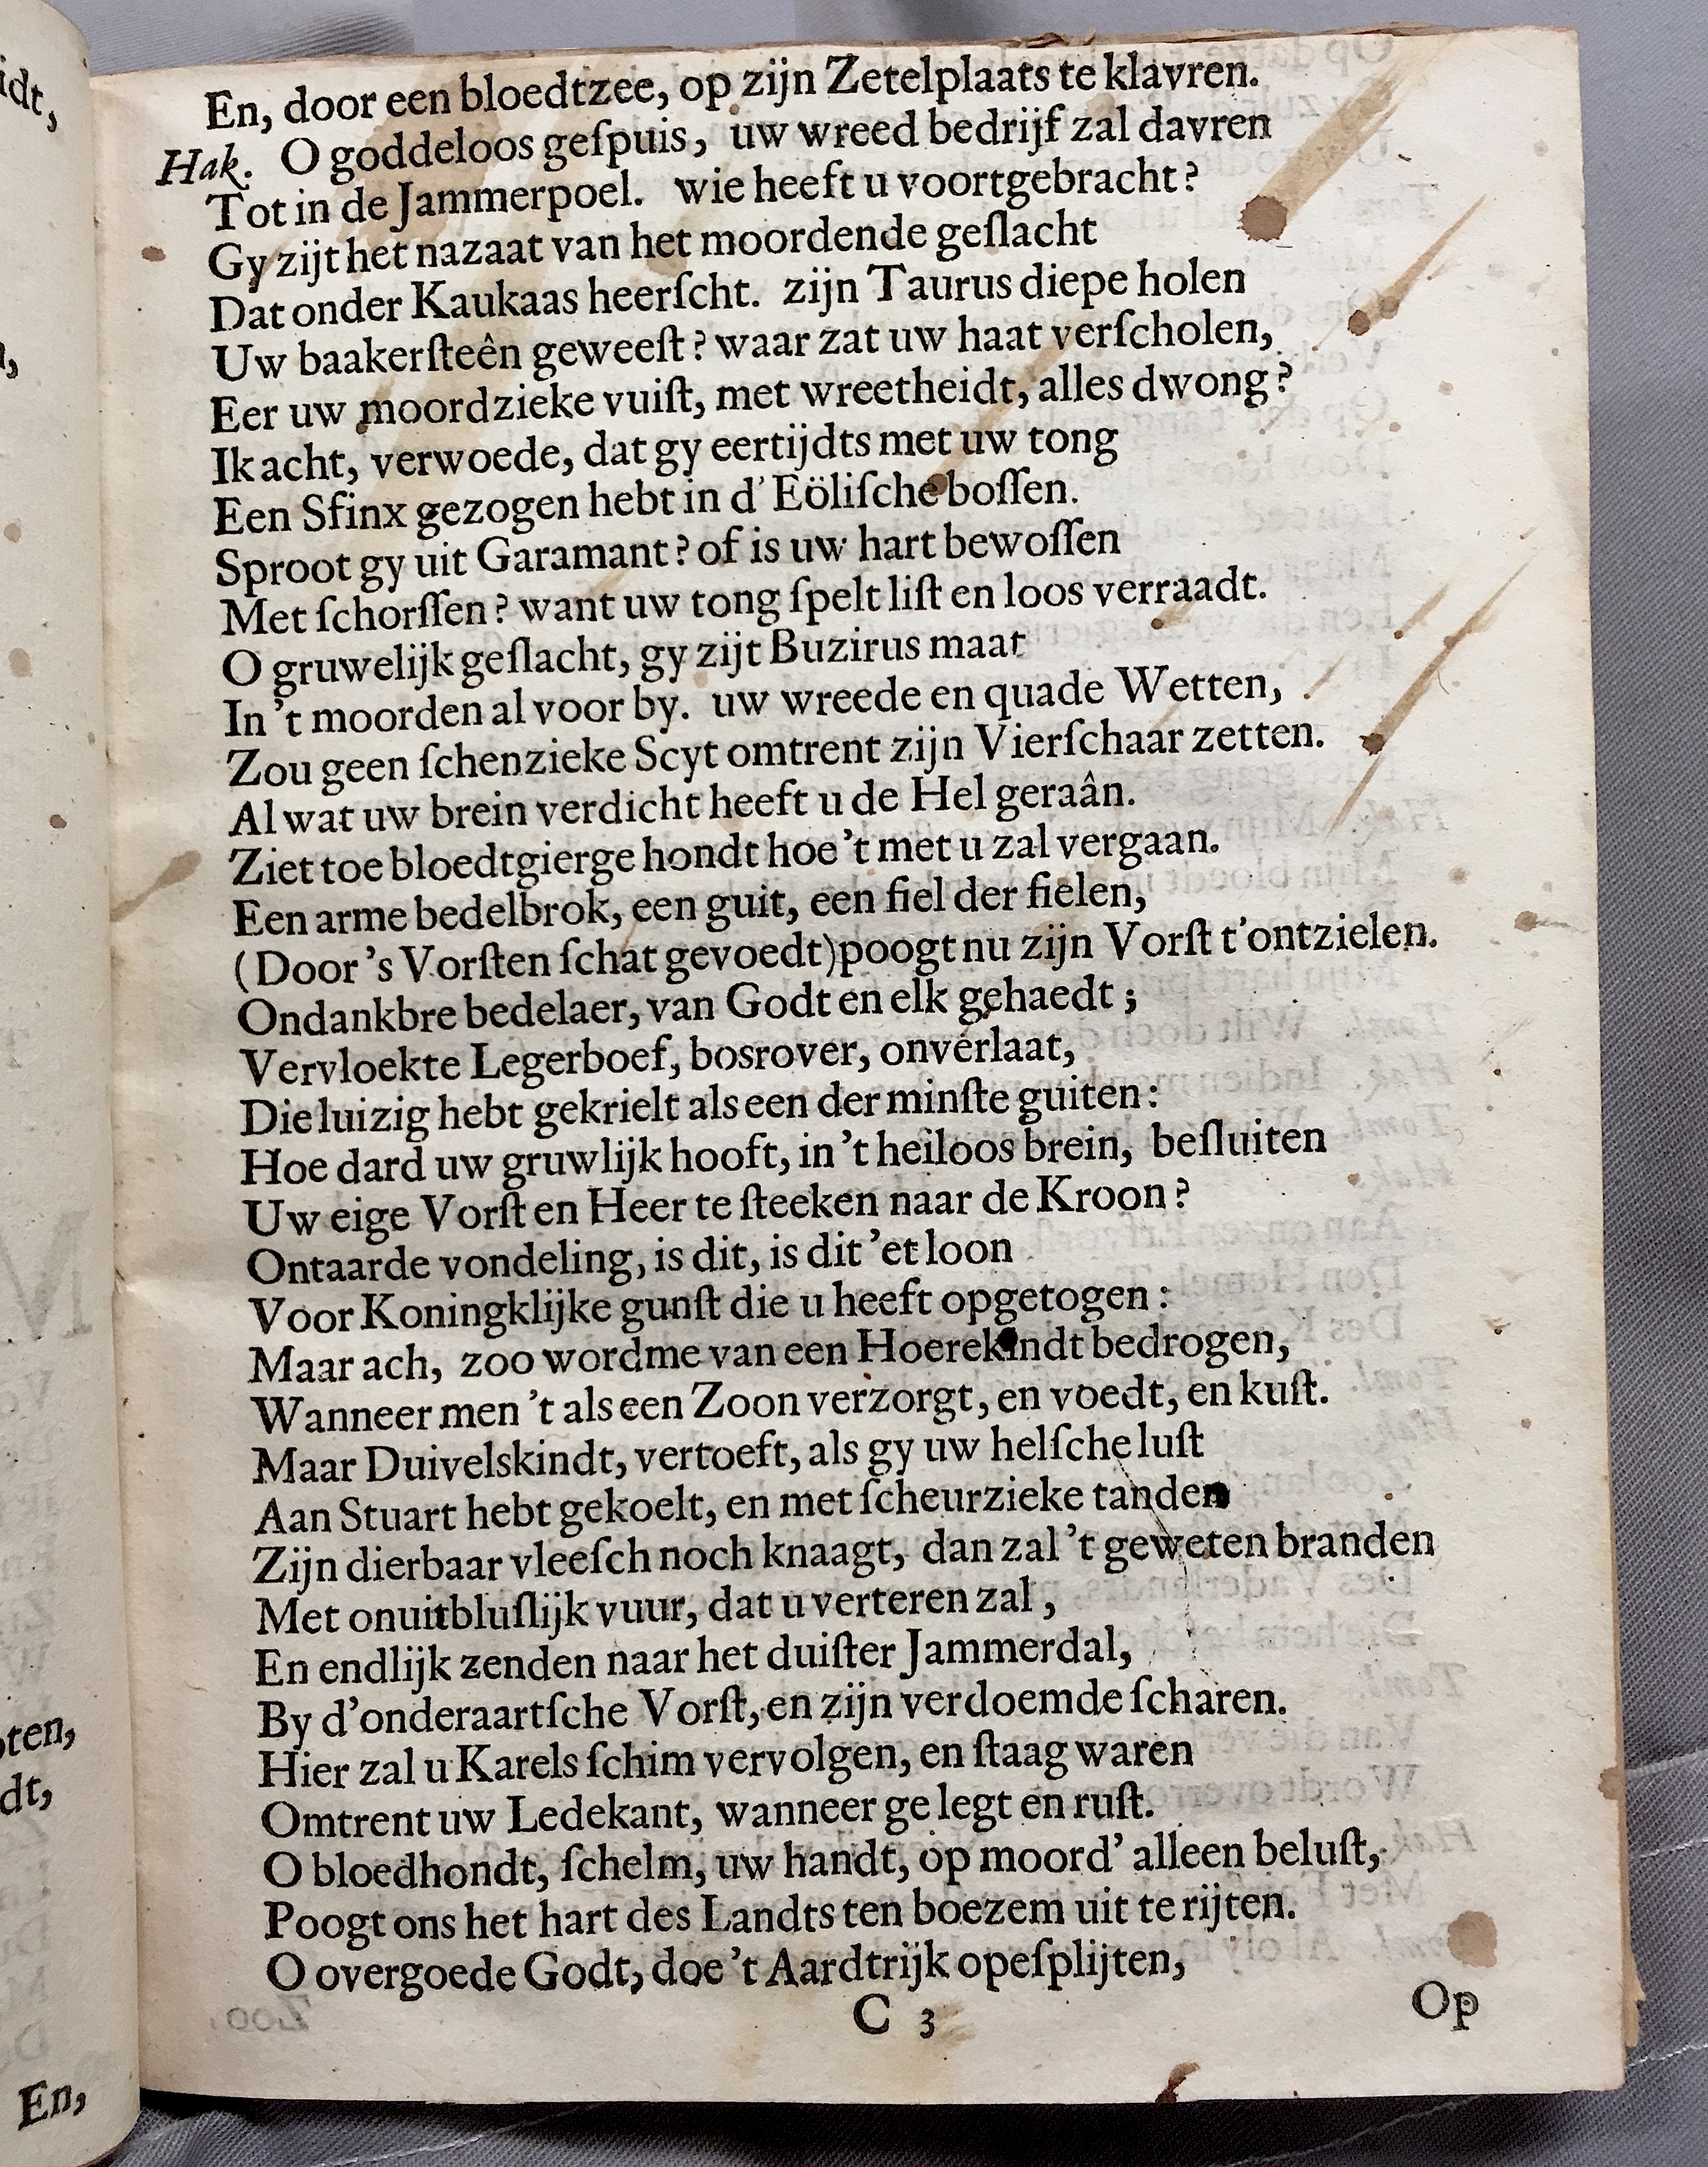 En, door een bloedtzee, op zijn Zetelplaats te klavren.
Hak. O goddeloos geſpuis, uw wreed bedrijf zal davren
Tot in de Jammerpoel. wie heeft u voortgebracht?
Gy zijt het nazaat van het moordende geſlacht
Dat onder Kaukaas heerſcht. zijn Taurus diepe holen
Uw baakerſteên geweeſt? waar zat uw haat verſcholen,
Eer uw moordzieke vuiſt, met wreetheidt, alles dwong?
Ik acht, verwoede, dat gy eertijdts met uw tong
Een Sfinx gezogen hebt in d' Eöliſche boſſen.
Sproot gy uit Garamant? of is uw hart bewoſſen
Met ſchorſſen? want uw tong ſpelt liſt en loos verraadt.
O gruwelijk geſlacht, gy zijt Buzirus maat
In 't moorden al voor by. uw wreede en quade Wetten,
Zou geen ſchenzieke Scyt omtrent zijn Vierſchaar zetten.
Al wat uw brein verdicht heeft u de Hel geraân.
Ziet toe bloedtgierge hondt hoe 't met u zal vergaan.
Een arme bedelbrok, een guit, een fiel der fielen,
(Door 's Vorſten ſchat gevoedt) poogt nu zijn Vorſt t'ontzielen.
Ondankbre bedelaer, van Godt en elk gehaedt;
Vervloekte Legerboef, bosrover, onverlaat,
Die luizig hebt gekrielt als een der minſte guiten:
Hoe dard uw gruwlijk hooft, in 't heiloos brein, beſluiten
Uw eige Vorſt en Heer te ſteeken naar de Kroon?
Ontaarde vondeling, is dit, is dit 'et loon
Voor Koningklijke gunſt die u heeft opgetogen:
Maar ach, zoo wordme van een Hoerekindt bedrogen,
Wanneer men 't als een Zoon verzorgt, en voedt, en kuſt.
Maar Duivelskindt, vertoeft, als gy uw helſche luſt
Aan Stuart hebt gekoelt, en met ſcheurzieke tanden
Zijn dierbaar vleeſch noch knaagt, dan zal 't geweten branden
Met onuitbluſlijk vuur, dat u verteren zal,
En endlijk zenden naar het duiſter Jammerdal,
By d'onderaartſche Vorſt, en zijn verdoemde ſcharen.
Hier zal u Karels ſchim vervolgen, en ſtaag waren
Omtrent uw Ledekant, wanneer ge legt en ruſt.
O bloedhondt, ſchelm, uw handt, op moord' alleen beluſt,
Poogt ons het hart des Landts ten boezem uit te rijten.
O overgoede Godt, doe 't Aardtrijk openſplijten,
C 3
Op
idt,
oten,
dt,
En,